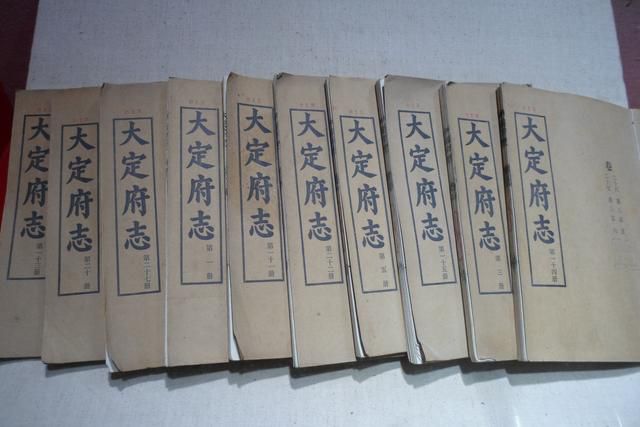 大定府志
第二十三册
大定府志
第二十册
大定府志
第二十七册
大定府志
第一册
大定府志
第十一册
大定府志
第二十二册
大定府志
第五册
大定府志
第一十五册
大定府志
第三册
大定府志
第一十四册
卷